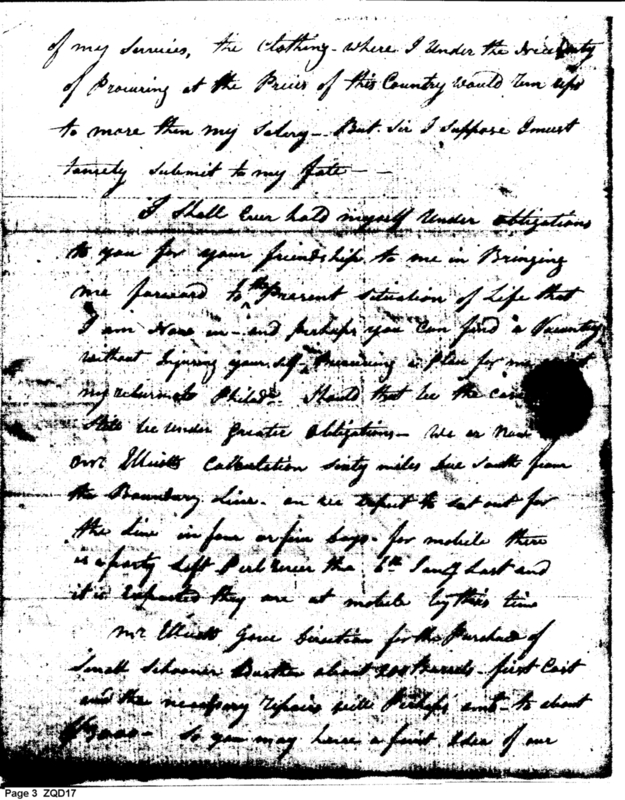 of my Services, the Clothing - where I under the
of Procuring at the Prices of this Country would
to more then my Salery - But Sir I Suppose I must
tamely submit to my fate -
I Shall Ever hold myself under obligations
to you for your friendship to me in Bringing
me forward to the Present Situation of Life that
I am Now in - and perhaps you Can find a
without Injuring yourself, Procuring a Plan for
my return to Philada. Should that be the case
be under Greater obligations - We ar Now
Mr Ellicott Calculation sixty miles due South from
the Boundary Line. an we expect to set out for
the Line in four or five Days - for mobile there
is a party Left the 6th Jany Last and
it is Expected they are at mobile by this time
Mr Ellicott Gave Direction for the Purchase of
Small Schooner Burthen about 200 Barrels - first Cost
and the necessary repairs will Perhaps amt to about
So you may have a faint Idea of our
Page 3 ZQD17